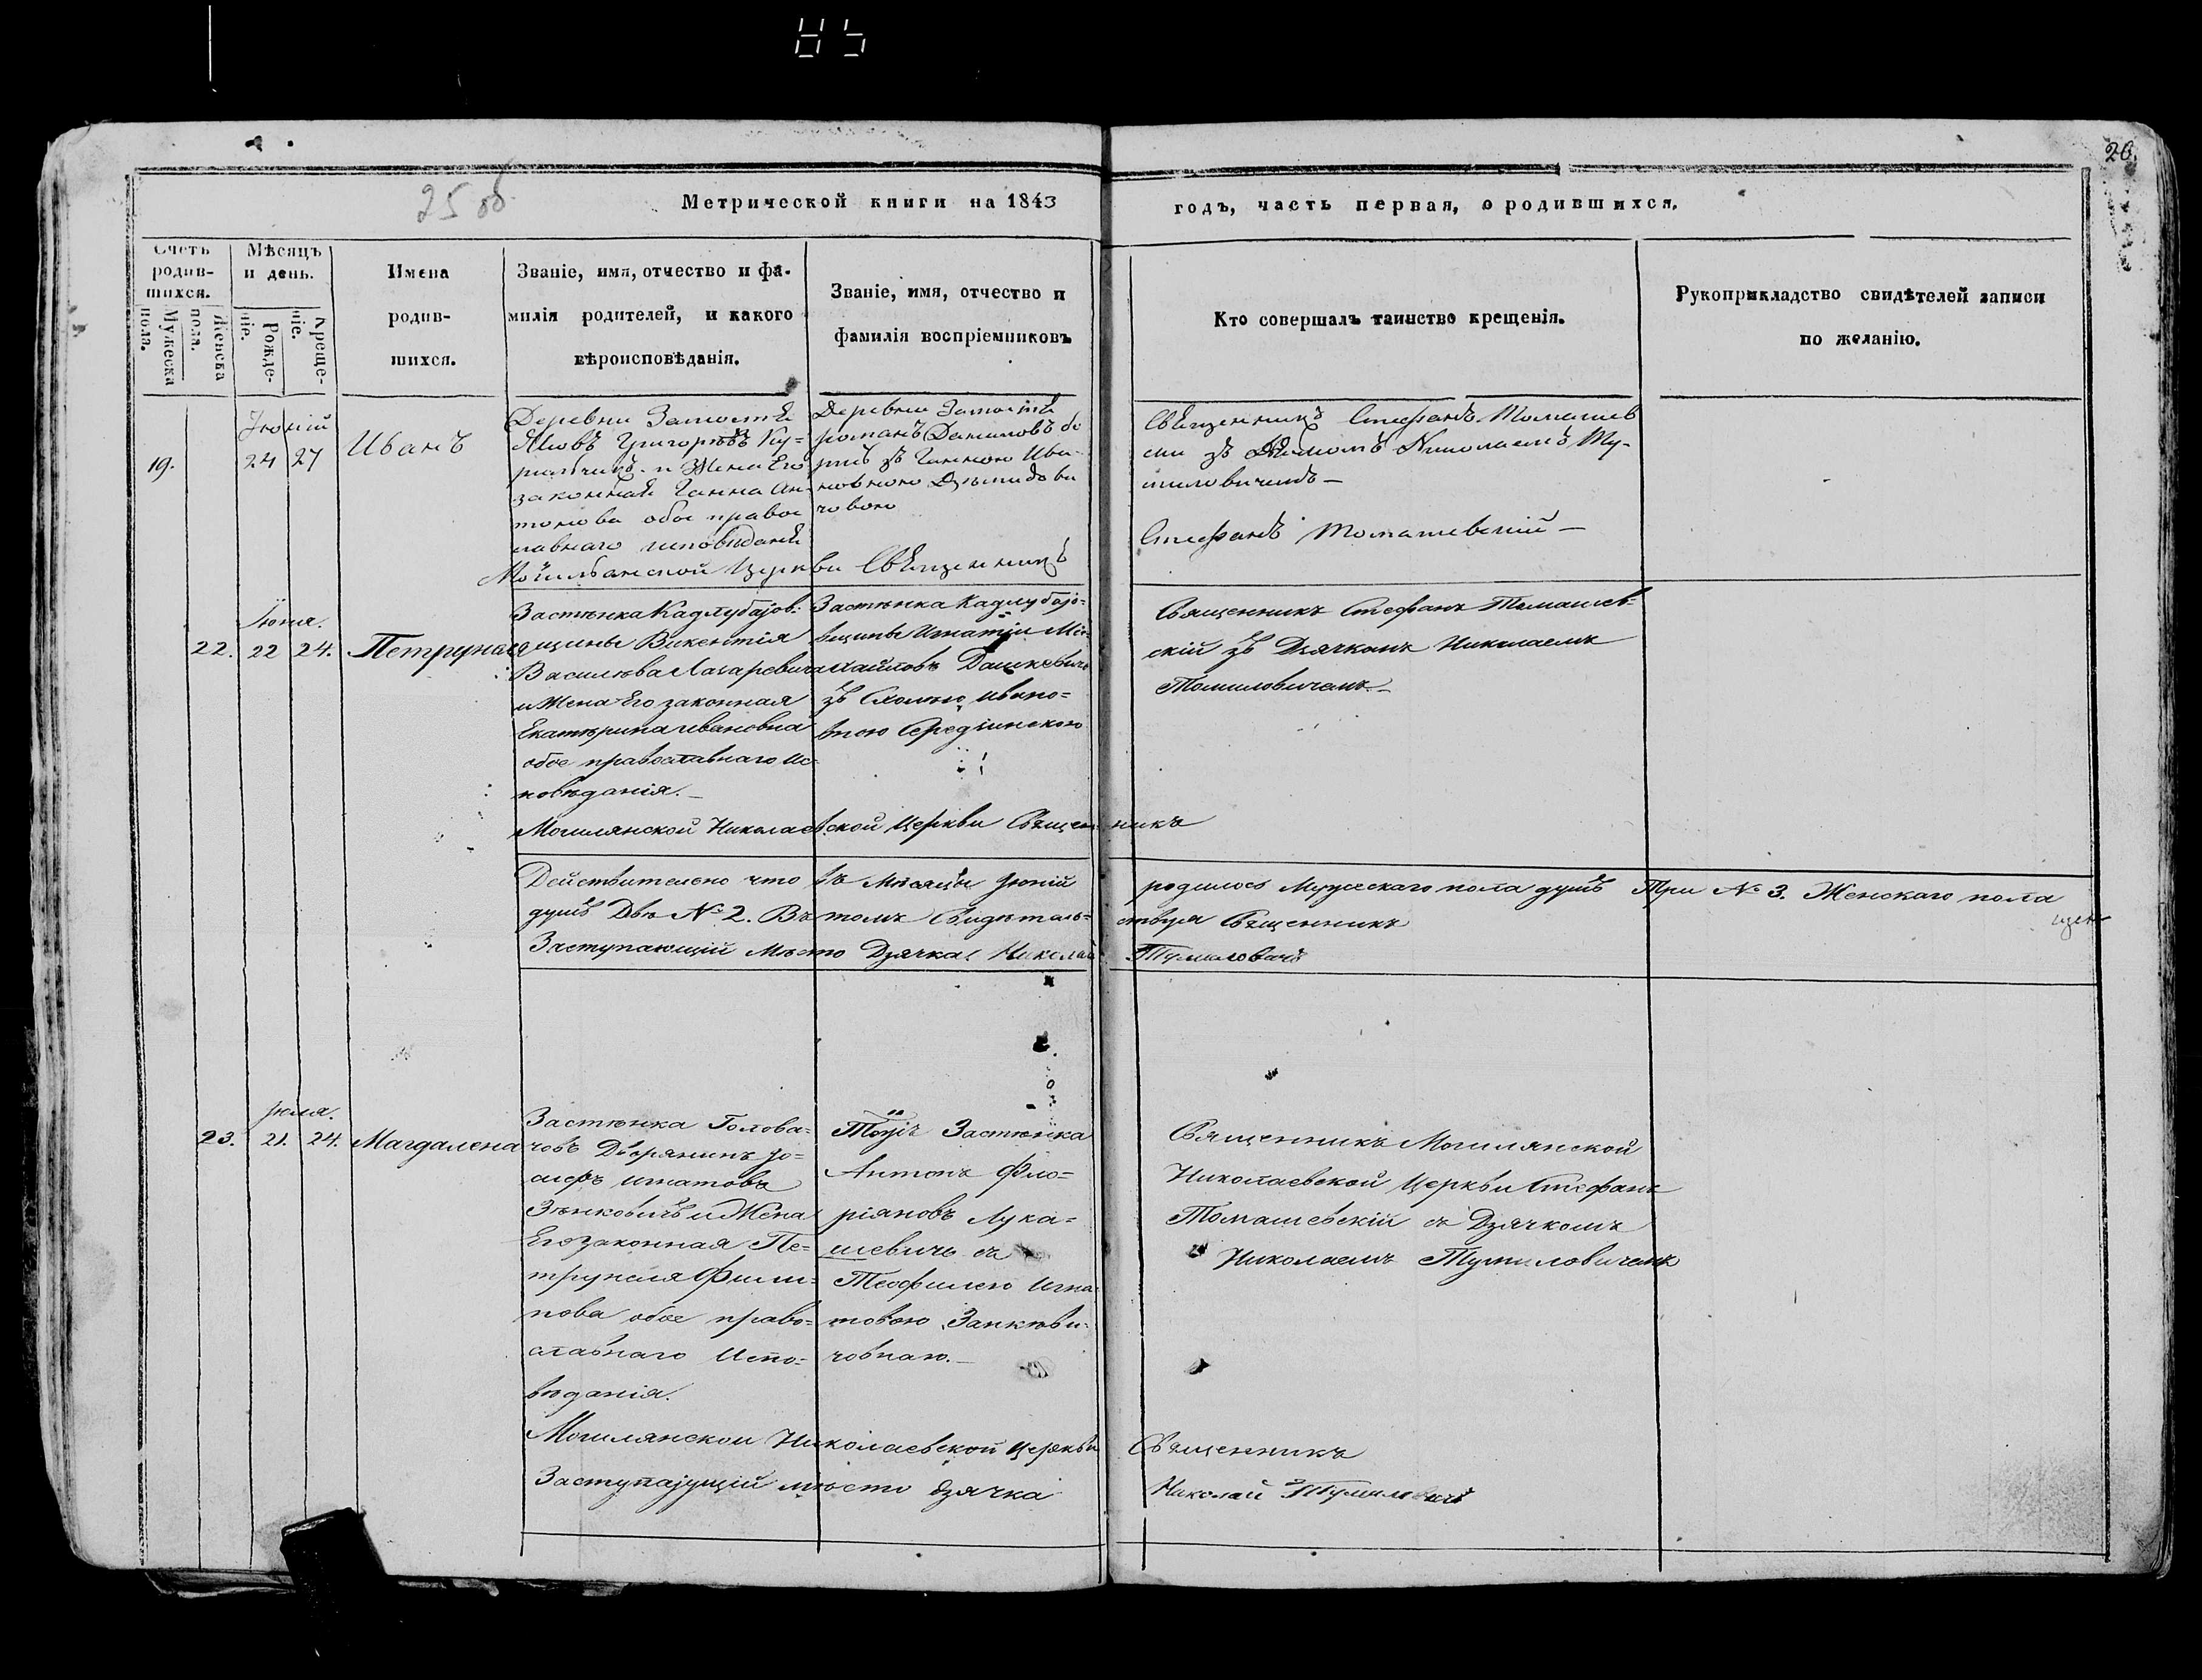 45
26.
25 об
Метрической книги на 1843
годъ, часть первая, о родившихся.
Счетъ родив-шихся.
Мужеска пола.
Женска пола.
Мѣсяцъ и день.
Рожде-ніе.
Креще-ніе.
Имена
родив-
шихся.
Званіе, имя, отчество и фа-
милія родителей, и какого
вѣроисповѣданія.
Званіе, имя, отчество и
фамилія воспріемниковъ
Кто совершалъ таинство крещенія.
Рукоприкладство свидѣтелей записи
по желанію.
Іюній
19.
24 27
Иванъ
Деревни
Яковъ Григорьевъ
и Жена Его
законная Ганна Ан-
тонова обое правос
лавнаго
Деревни
романъ Даниловъ
зъ Ганною Ива-
новною
Стефанъ Томашев
ски зъ Николаемъ Ту-
миловичемъ —
Стефанъ Томашевскій —
Церкви
Іюня.
22. 22 24. Петрунеля
Застѣнка Кадлубајов-
щины Викентія
Василюва Лазаревича
и Жена Его законная
Екатѣрина Ивановна
обое православнаго Ис-
повѣданія. —
Застѣнка Кадлубајо-
вщины Игнатіи Ми-
хайловъ Дашкевичъ
зъ Ивано-
вною
Священникъ Стефанъ Томашев-
скій зъ Дзячкомъ Николаемъ
Томиловичемъ. —
Могилянской Николаевской Церкви Священникъ
Действително что въ Мѣсяцы Јюній родилось Мужескаго пола душъ Три № 3. Женскаго пола
душъ Двѣ № 2. Въ томъ Свидѣтель-ствуя Священникъ
Заступающій Мѣсто Дзячка Николай Тумиловичъ
Јюля.
23. 21. 24. Магдалена
Застѣнка Голова-
човъ Дворянинъ Јо-
сифъ Игнатовъ
Зѣнковичъ и Жена
Его законная Пе-
трунеля Фили-
пова обое право-
славнаго Испо-
вѣданія.
Застѣнка
Антонъ Фло-
ріяновъ Лука-
шевичъ съ
Теофилею Игна
товою Занкѣви-
човною. —
Священникъ Могилянской
Николаевской Церкви Стефанъ
Томашевскій съ Дзячкомъ
Николаемъ Тумиловичемъ
Могилянской Николаевской Церкви Священникъ
Заступајущій мѣсто дзячка Николай Тумиловичъ